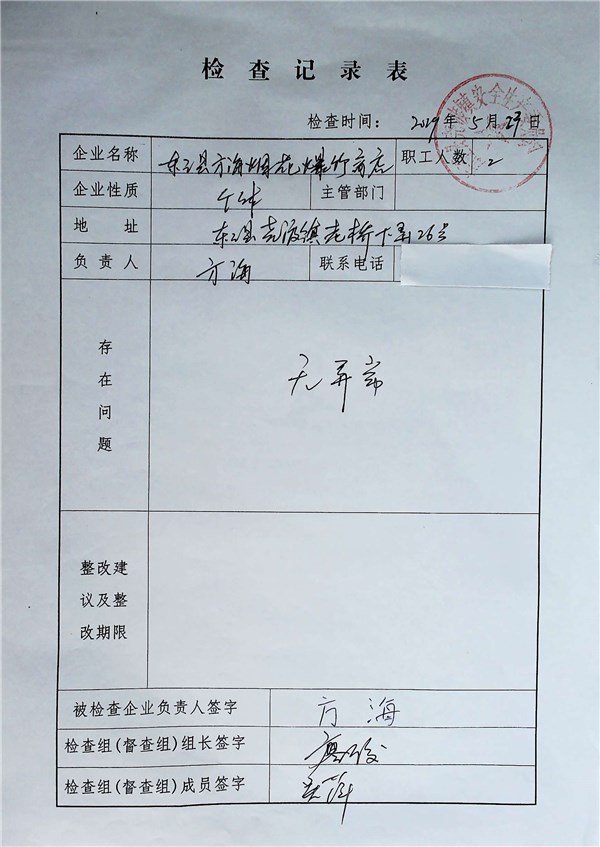 检查记录表
检查时间: 2019年5月29日
企业名称 东至县方海烟花爆竹商店 职工人数 2
企业性质 个体 主管部门
地址 东至县尧渡镇老桥下26号
负责人 方海 联系电话
存在问题 无异常
整改建议及整改期限
被检查企业负责人签字 方海
检查组(督查组)组长签字
检查组(督查组)成员签字